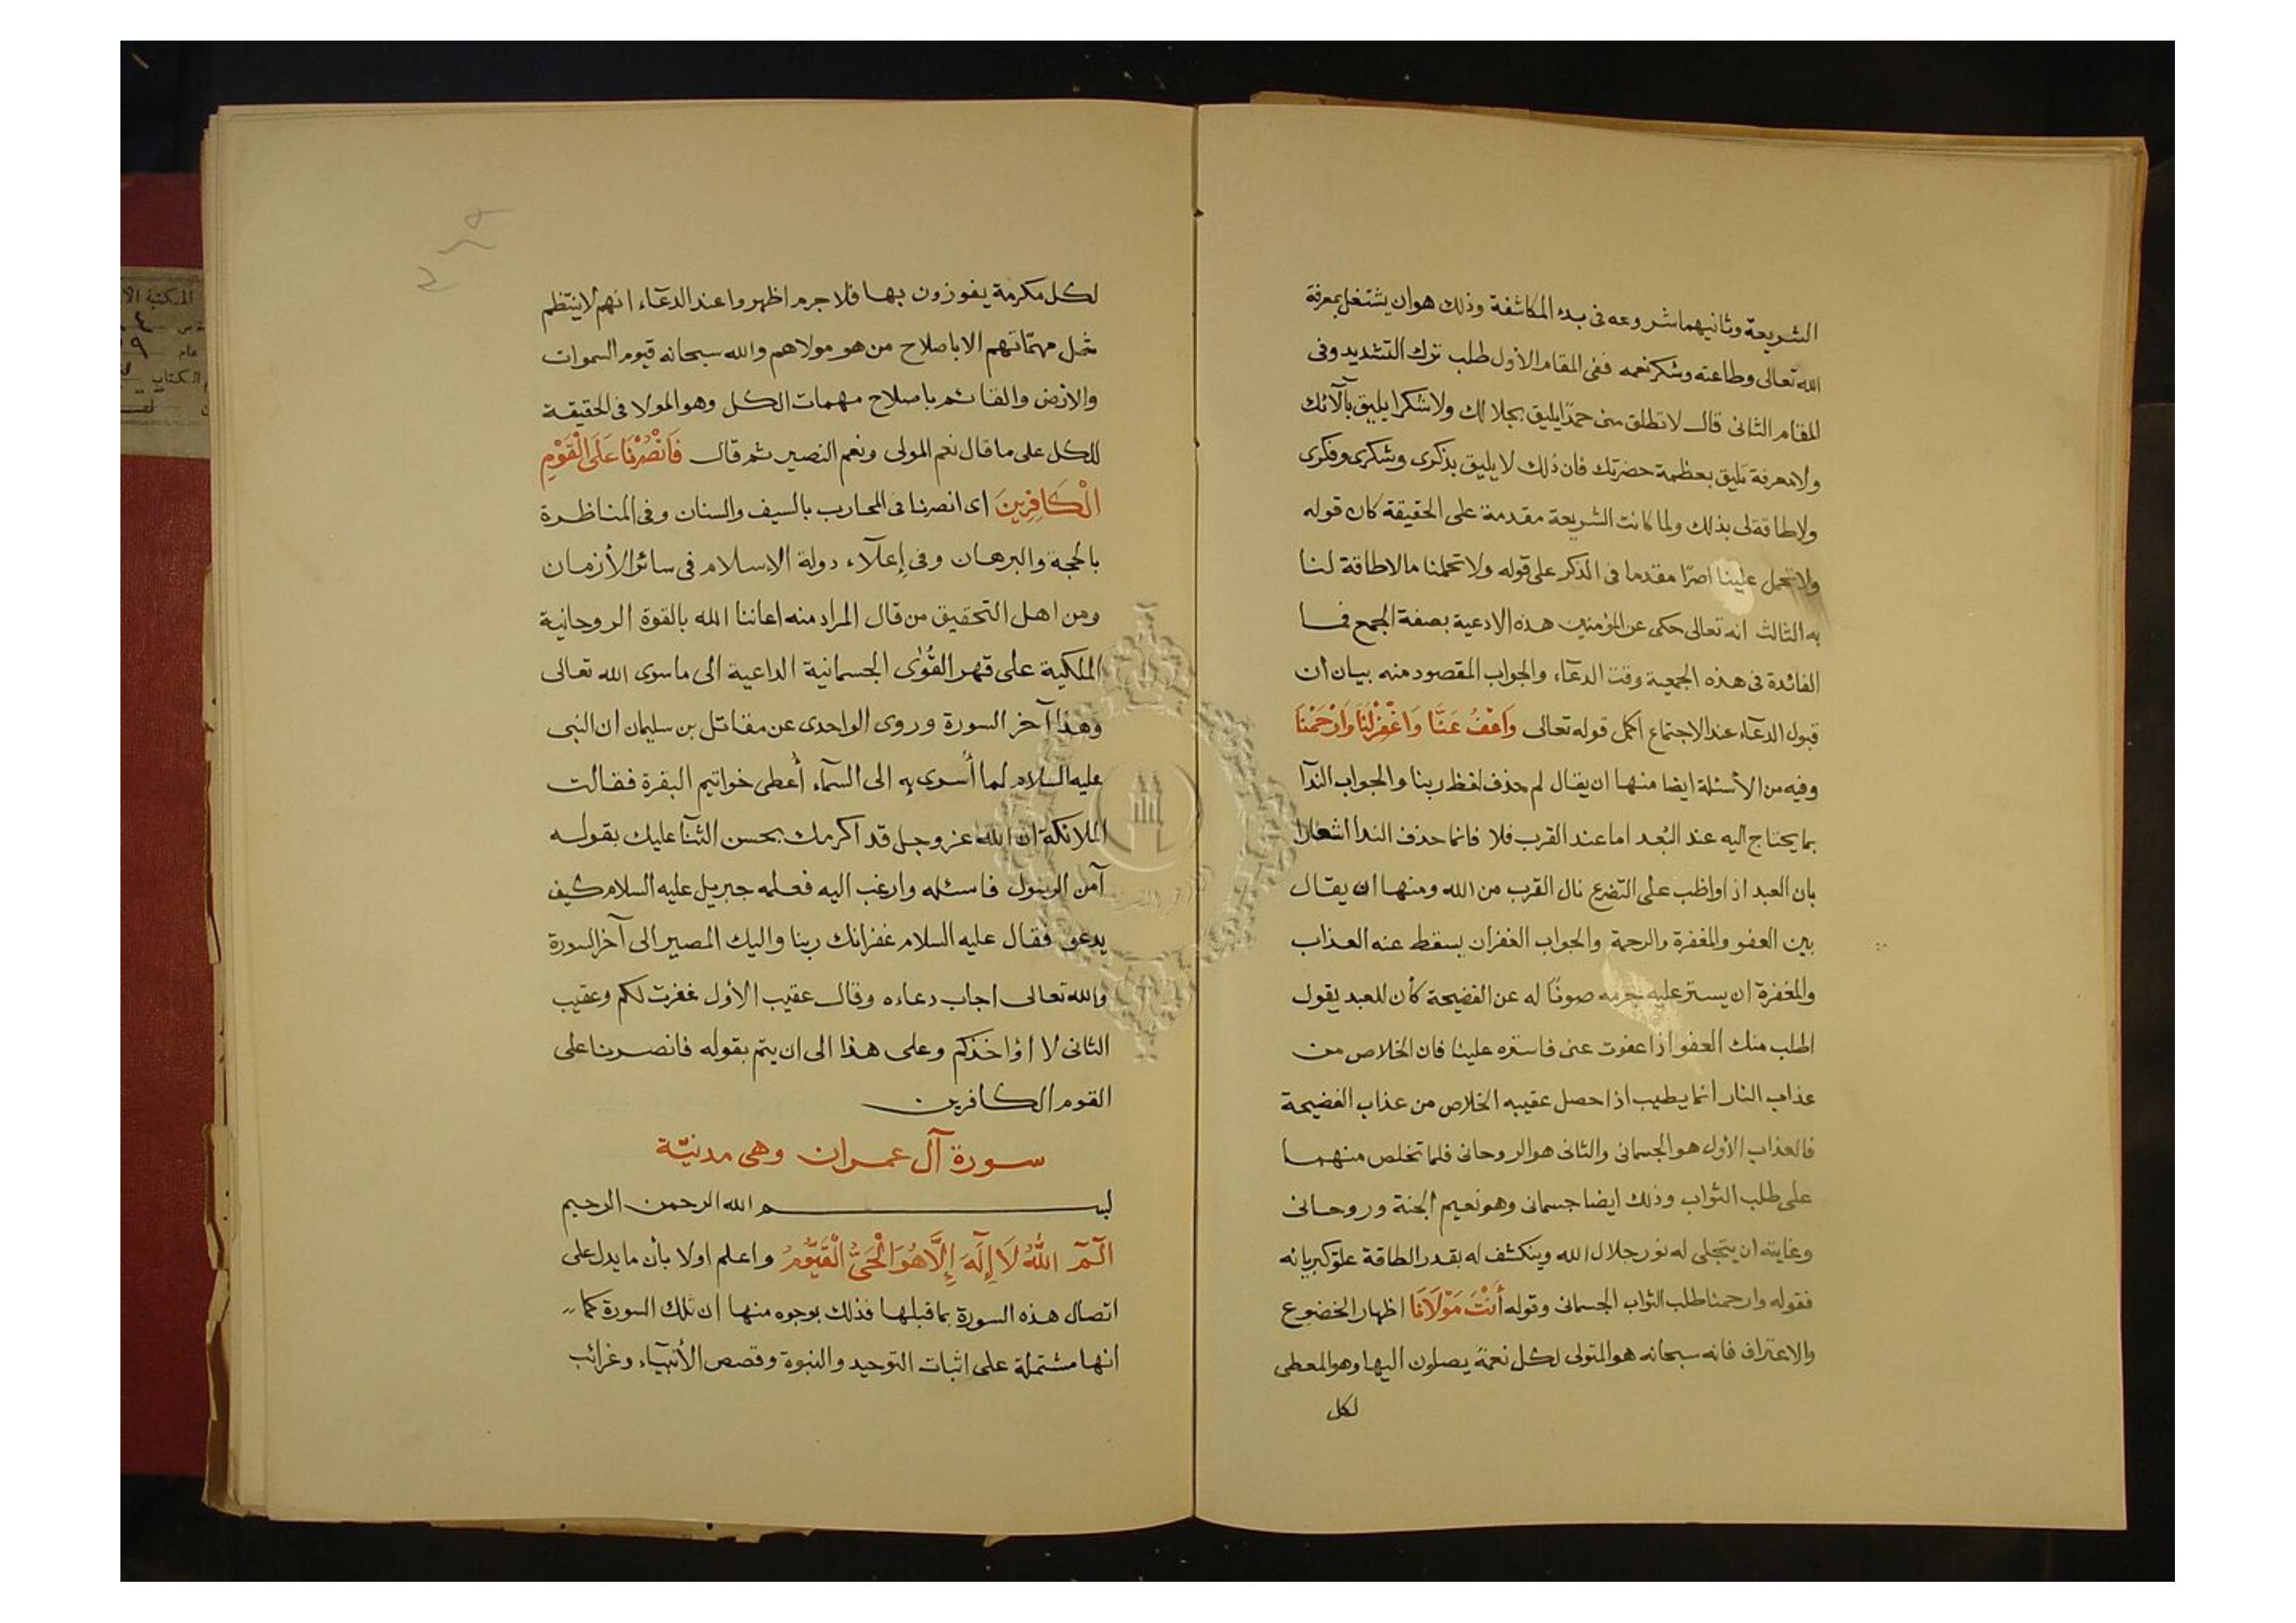 الشريعة وثانيهما شروعه فى بدء المكاشفة وذلك هو ان يشتغل بمعرفة
الله تعالى وطاعته وشكر نعمه ففى المقام الأول طلب ترك التشديد وفى
المقام الثانى قال لا تطلق منى حمدًا يليق بجلالك ولا شكرا يليق بآلآئك
ولا معرفة تليق بعظمة حضرتك فان ذلك لا يليق بذكرى وشكرى وفكرى
ولا طاقة لى بذلك ولما كانت الشريعة مقدمة على الحقيقة كان قوله
ولا تحمل علينا اصرًا مقدما فى الذكر على قوله ولا تحملنا مالا طاقة لنا
به الثالث انه تعالى حكى عن المؤمنين هذه الادعية بصفة الجمع فما
الفائدة فى هذه الجمعية وقت الدعآء والجواب المقصود منه بيان أن
قبول الدعآء عند الاجتماع اكمل قوله تعالى وَاعْفُ عَنَّا وَاغْفِرْ لَنَا وَارْحَمْنَا
وفيه من الأسئلة ايضا منها ان يقال لم حذف لفظ ربنا والجواب الندآ
بما يحتاج اليه عند البُعد اما عند القرب فلا فانما حذف الندا اشعارا
بان العبد اذا واظب على التضرع نال القرب من الله ومنها ان يقال
بين العفو والمغفرة والرحمة والجواب الغفران يسقط عنه العذاب
والمغفرة ان يستر عليه جرمه صونًا له عن الفضيحة كأن للعبد يقول
اطلب منك العفو اذا عفوت عنى فاستره علينا فان الخلاص من
عذاب النار انما يطيب اذا حصل عقيبه الخلاص من عذاب الفضيحة
فالعذاب الأول هو الجسمانى والثانى هو الروحانى فلما تخلص منهما
على طلب الثواب وذلك ايضا جسمانى وهو نعيم الجنة وروحانى
وغايته ان يتجلى له نور جلال الله وينكشف له بقدر الطاقة علوّ كبريائه
فقوله وارحمنا طلب الثواب الجسمانى وقوله أَنْتَ مَوْلَانَا اظهار الخضوع
والاعتراف فانه سبحانه هو المتولى لكل نعمة يصلون اليها وهو المعطى
لكل
لكل مكرمة يفوزون بها فلا جرم اظهروا عند الدعآء انهم لا ينتظم
شمل مهمّاتهم الا باصلاح من هو مولاهم والله سبحانه قيوم السموات
والارض والقائم باصلاح مهمات الكل وهو المولا فى الحقيقة
للكل على ما قال نعم المولى ونعم النصير ثم قال فَانْصُرْنَا عَلَى الْقَوْمِ
الْكَافِرِينَ اى انصرنا فى المحارب بالسيف والسنان وفى المناظرة
بالحجة والبرهان وفى إعلآء دولة الاسلام فى سائر الأزمان
ومن اهل التحقيق من قال المراد منه اعاننا الله بالقوة الروحانية
الملكية على قهر القُوٰى الجسمانية الداعية الى ما سوى الله تعالى
وهذا آخر السورة وروى الواحدى عن مقاتل بن سليمان ان النبى
عليه السلام لما أُسرى به الى السمآء أُعطى خواتيم البقرة فقالت
الملائكة ان الله عز وجل قد اكرمك بحسن الثنآ عليك بقوله
آمن الرسول فاسئله وارغب اليه فعلمه جبريل عليه السلام كيف
يدعو فقال عليه السلام غفرانك ربنا واليك المصير الى آخر السورة
والله تعالى اجاب دعاءه وقال عقيب الأول غفرت لكم وعقيب
الثانى لا أؤاخذكم وعلى هذا الى ان يتم بقوله فانصرنا على
القوم الكافرين
سورة آل عمران وهى مدنيّة
بسم الله الرحمن الرحيم
الٓمٓ اللهُ لَا إِلٰهَ إِلَّا هُوَ الْحَىُّ الْقَيُّومُ واعلم اولا بأن ما يدل على
اتصال هذه السورة بما قبلها فذلك بوجوه منها ان تلك السورة كما
انها مشتملة على اثبات التوحيد والنبوة وقصص الأنبيآء وغرائب